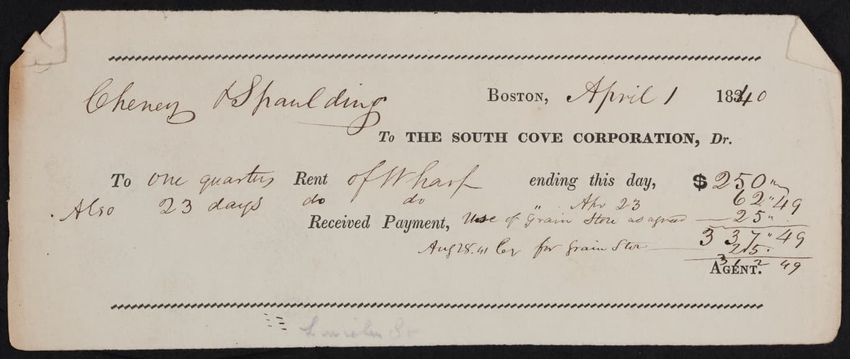 Cheney & Spaulding Boston, April 1 1840
To THE SOUTH COVE CORPORATION, Dr.
To one quarters Rent of Wharf ending this day, $ 250 "
Also 23 days do do " Apr 23 62 " 49
Received Payment, Use of Grain Store as agreed 25 "
337 " 49
Aug 28. 41 for Grain Store 25 "
312 " 49
AGENT.